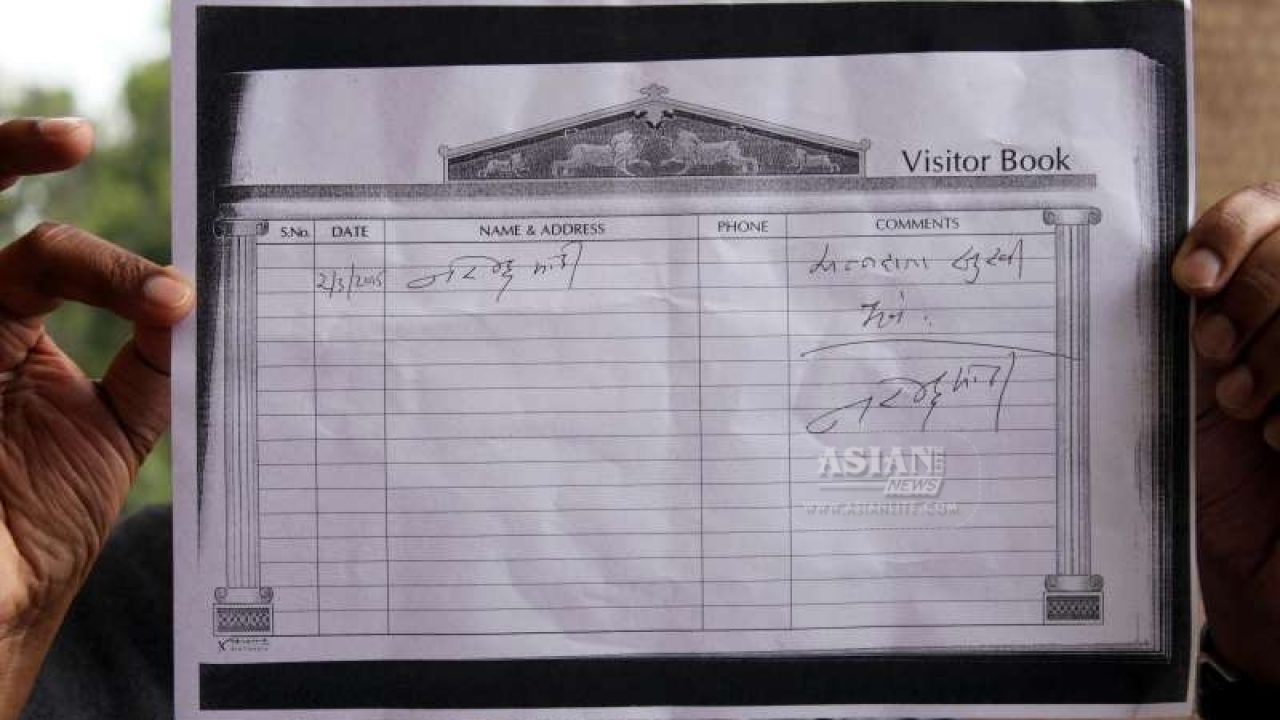 Visitor Book
S.No. DATE NAME & ADDRESS PHONE COMMENTS
2/3/2015 नरेन्द्र मोदी अन्नदाता सुखी
भव :
नरेन्द्र मोदी
ASIAN LITE
NEWS
WWW.ASIANLITE.COM